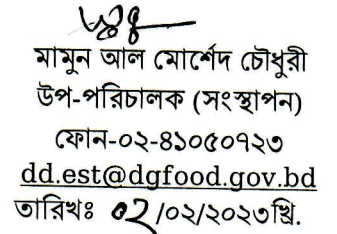 মামুন আল মোর্শেদ চৌধুরী
উপ-পরিচালক (সংস্থাপন)
ফোন-০২-৪১০৫০৭২৩
dd.est@dgfood.gov.bd
তারিখঃ ০২/০২/২০২৩খ্রি.